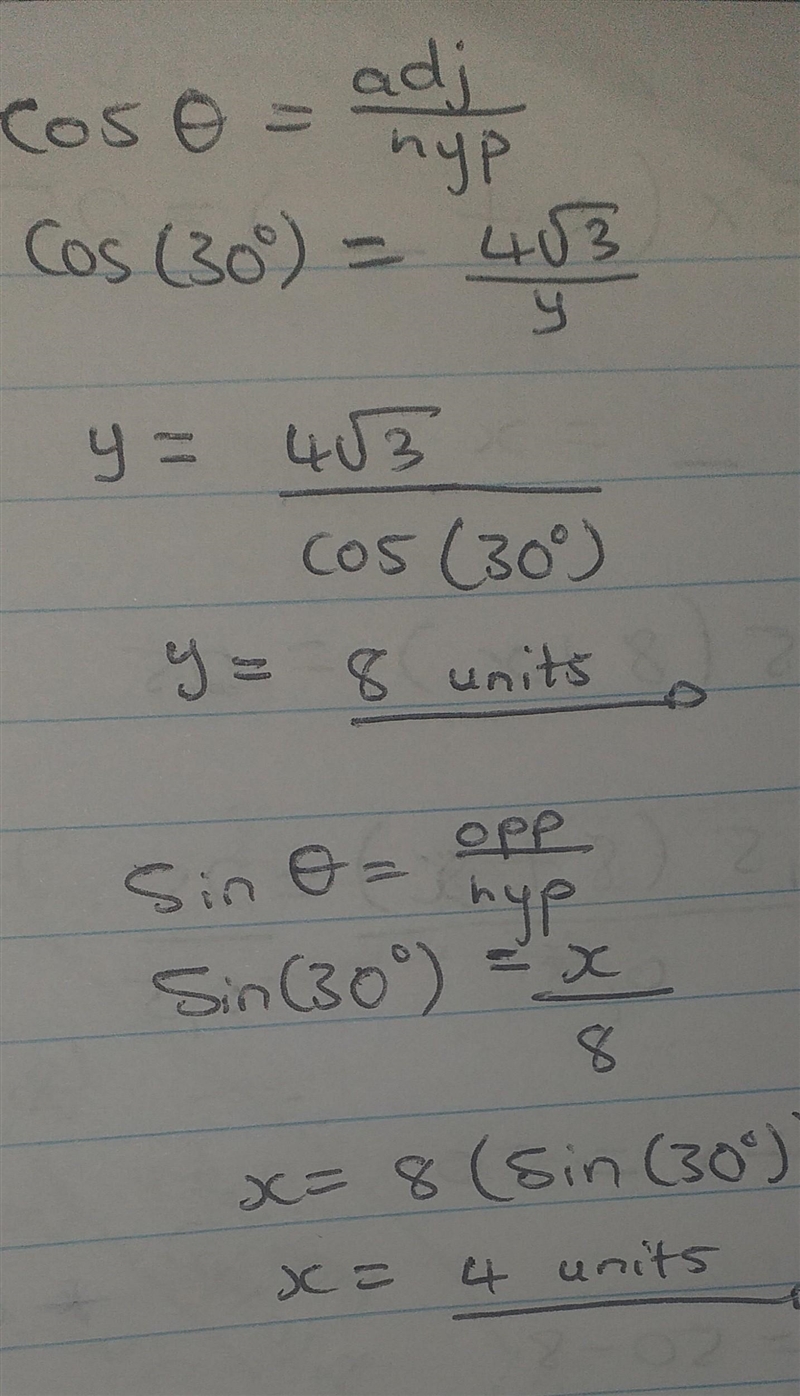 cos θ = adj/hyp
cos(30°) = 4√3/y
y = 4√3/cos(30°)
y = 8 units
sin θ = opp/hyp
sin(30°) = x/8
x = 8 (sin(30°)
x = 4 units